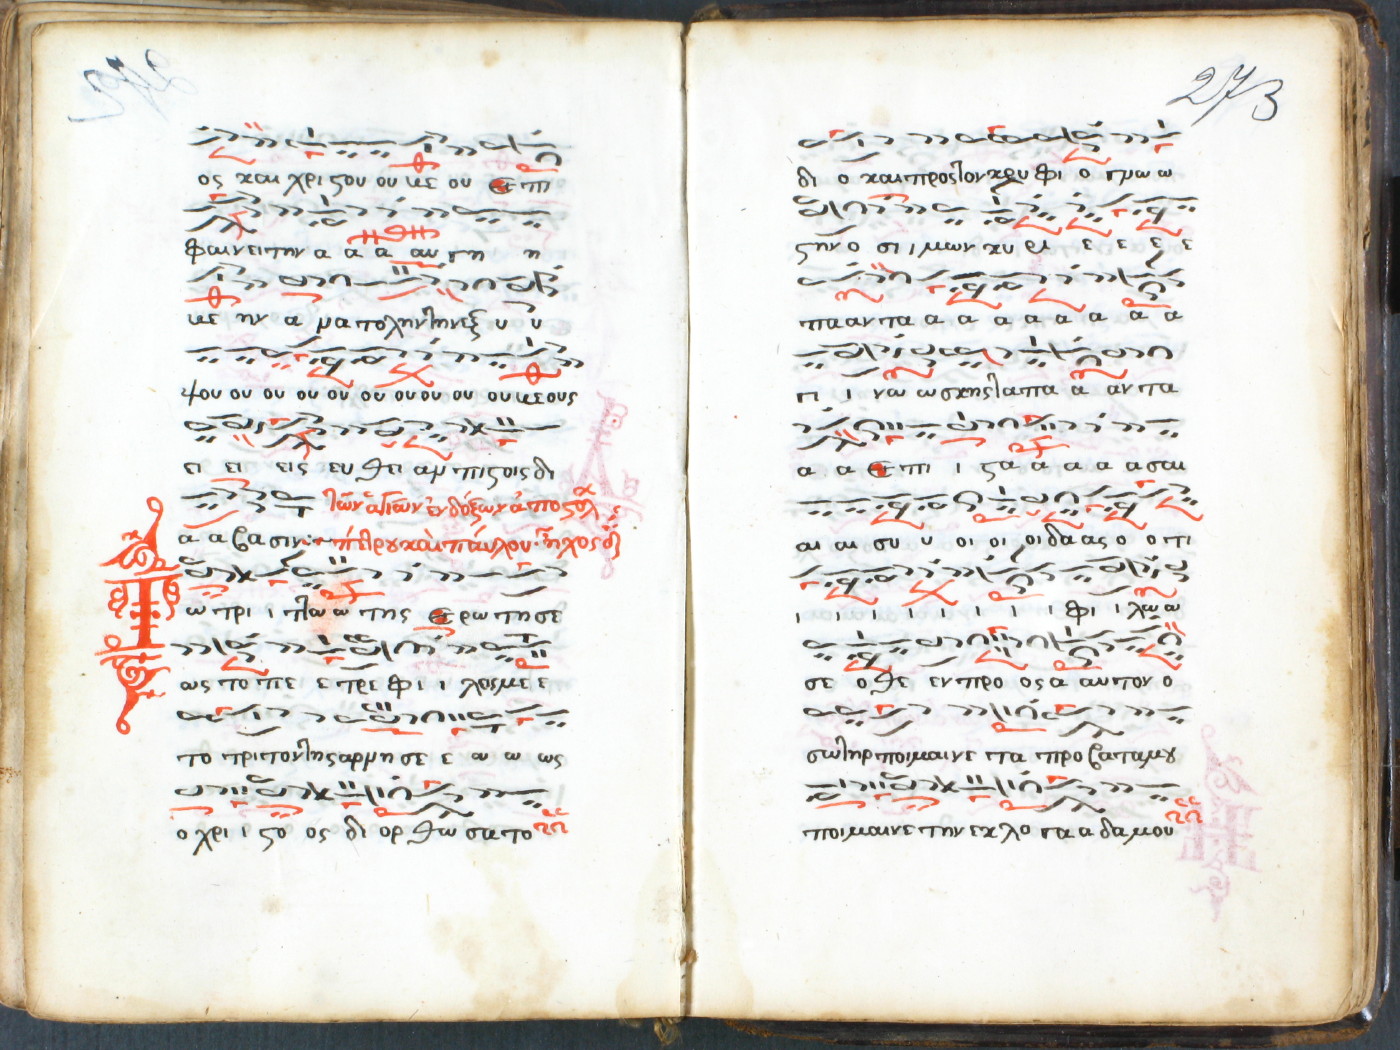 273
ος και χρι ϛου ου κε ου επ
φαι νει την α α α αυ τη η
κε ην α μα το λην την εξ υ υ
ψου ου ου ου ου ου ου ου ου ου κε ους
ει ει εις ευ θει αρ πι ζοις δι
των αγιων ενδοξων αποϛολ
α α βα σιν πετρου και παυλου ηχος δ
τω τρι ι τω ω της ερω τη σε
ως το πε ε τρε φι ι λεις με ε
το τρι τον της αρ νη σε ε ω ω ως
ο χρι ι ϛο ος δι ορ θω σα το
δι ο και προς τον κρυ φι ο γνω ω
ϛην ο σι ι μων κυ ρι ε ε ε ε
πα αν τα α α α α α α α α
γι ι νω ω σκης τα πα α αν τα
α α επι ι ϛα α α α α σαι
αι αι συ υ οι οι οι δα ας ο ο τι
ι ι ι ι ι ι ι φι ι λω ω
σε ο θε εν προ ος α αυ τον ο
σω τηρ ποι μαι νε τα προ βα τα μου
ποι μαι νε την εκ λο γα α δα μου